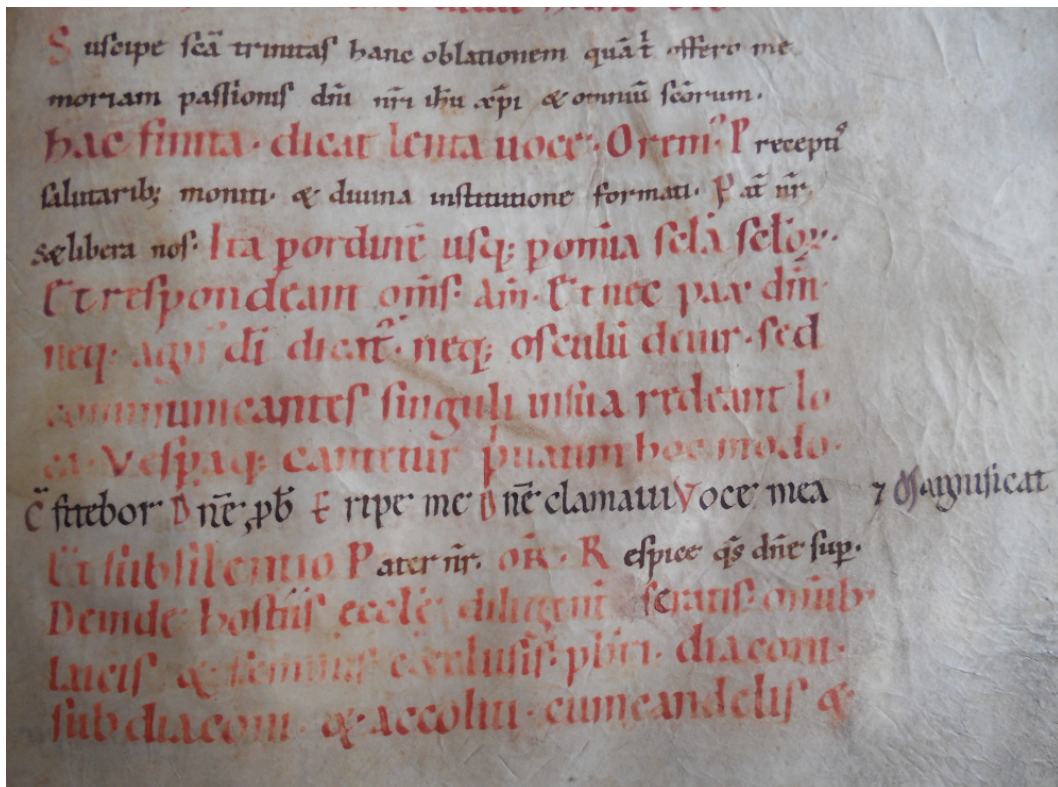 Suscipe scā trinitas hanc oblationem quā t̄ offero me
moriam passionis dn̄i nr̄i ih̄u xp̄i & omniū scōrum.
hac finita. dicat lenta uoce. Orem. P recepti
salutarib; moniti. & diuina institutione formati. Pat̄ nr̄.
libera nos. Ita p ordinē usq; p om̄ia scl̄a scl̄oꝝ.
Et respondeant om̄s. Am̄. Et nec pax dn̄i
neq; agn di dicat̄. neq; osculū detur. sed
communicantes singuli in sua redeant lo
ca. Vespaq; cantetur hoc modo.
C̄fitebor Dn̄e, pb̄ Eripe me Dn̄e clamaui Voce mea ⁊ Magnificat
Et sub silentio Pater nr̄. or̄. Respice q̄s dn̄e sup.
Deinde hostiis eccl̄e diligent̄ seratis. omīb.
Laicis & feminis exclusis. pb̄ri. diaconi.
subdiaconi. & accoliti. cum candelis &